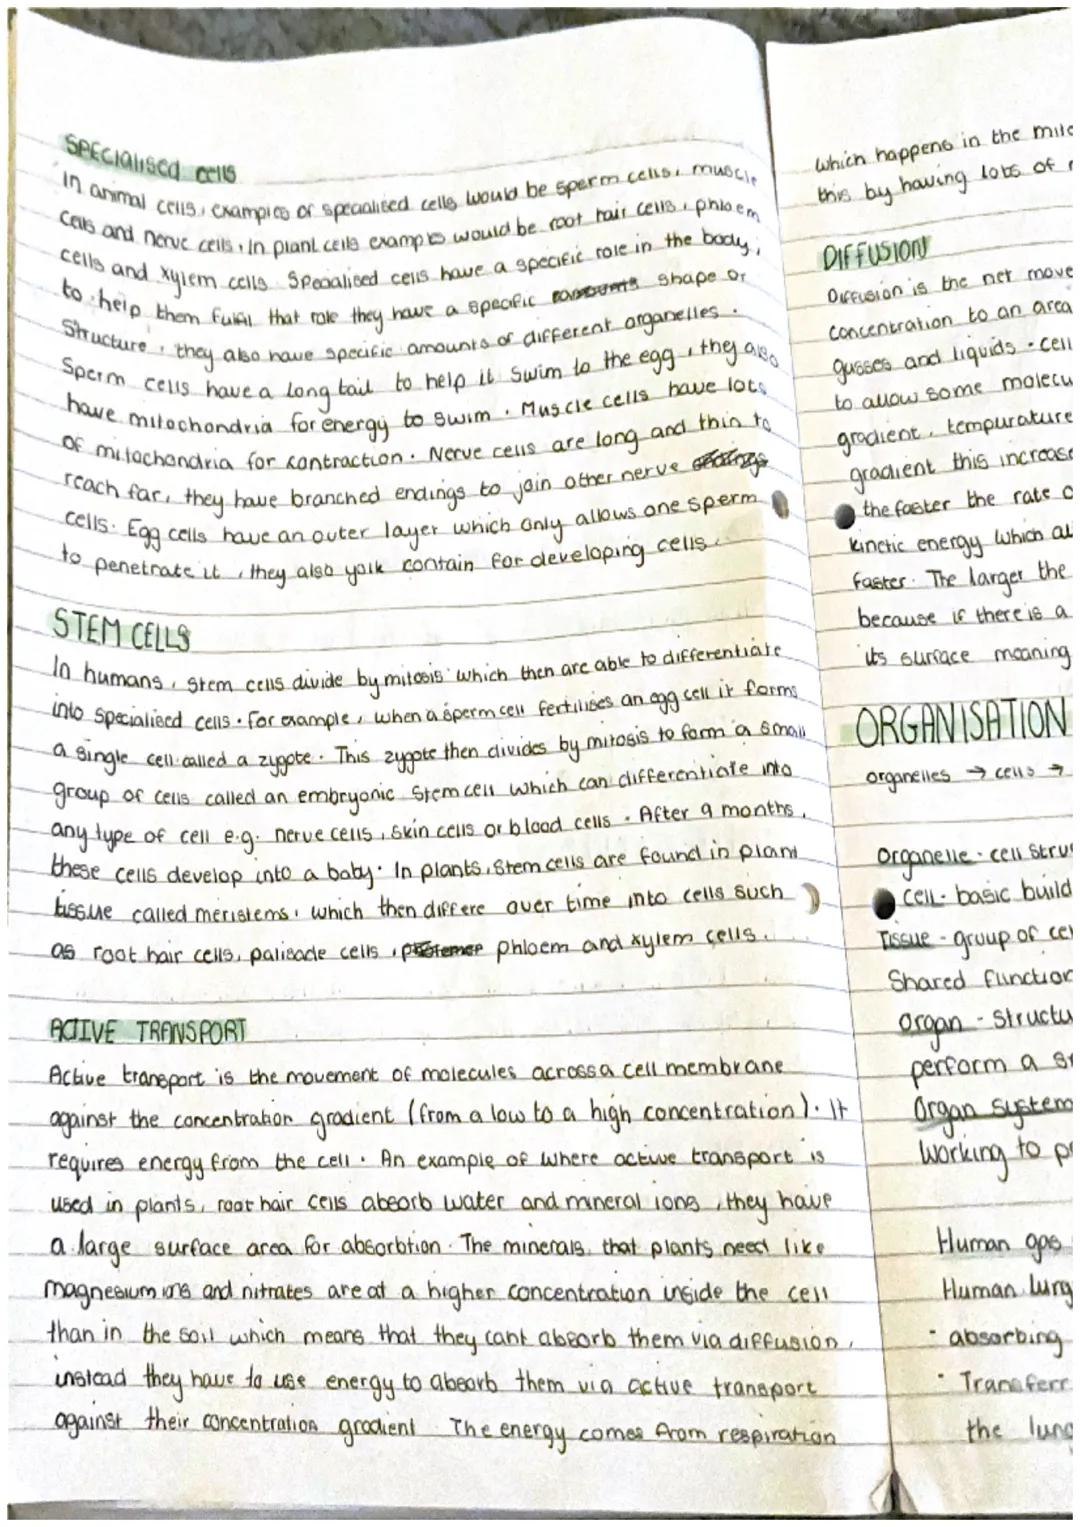 SPECIalised cells
in animal cells, examples of specialised cells would be sperm cells, muscle
cells and nerve cells. In plant cells examples would be root hair cells, phloem
cells and xylem cells. Specialised cells have a specific role in the body,
to help them fulfil that role they have a specific shape or
structure, they also have specific amounts of different organelles.
Sperm cells have a long tail to help it swim to the egg, they also
have mitochondria for energy to swim. Muscle cells have lots
of mitochondria for contraction. Nerve cells are long and thin to
reach far, they have branched endings to join other nerve
cells. Egg cells have an outer layer which only allows one sperm
to penetrate it, they also yolk contain for developing cells.
STEM CELLS
In humans, stem cells divide by mitosis which then are able to differentiate
into specialised cells. For example, when a sperm cell fertilises an egg cell it forms
a single cell called a zygote. This zygote then divides by mitosis to form a small
group of cells called an embryonic stem cell which can differentiate into
any type of cell e.g. nerve cells, skin cells or blood cells. After 9 months,
these cells develop into a baby. In plants, stem cells are found in plant
tissue called meristems, which then differe over time into cells such
as root hair cells, palisade cells, phloem and xylem cells.
ACTIVE TRANSPORT
Active transport is the movement of molecules across a cell membrane
against the concentration gradient (from a low to a high concentration). It
requires energy from the cell. An example of where active transport is
used in plants, root hair cells absorb water and mineral ions, they have
a large surface area for absorbtion. The minerals that plants need like
magnesium ions and nitrates are at a higher concentration inside the cell
than in the soil which means that they cant absorb them via diffusion,
instead they have to use energy to absorb them via active transport
against their concentration gradient The energy comes from respiration
which happens in the
this by having lots of
DIFFUSION
Diffusion is the net move
concentration to an area
gasses and liquids. cell
to allow some molecu
gradient, tempurature
gradient this increase
the faster the rate o
kinetic energy which
faster. The larger the
because if there is a
its surface meaning
ORGANISATION
organelles → cells →
Organelle - cell Stru
Cell - basic build
Tissue - group of
Shared function
organ - structu
perform a
Organ system
working to
Human gas
Human lung
· absorbing
· Transferr
the lung